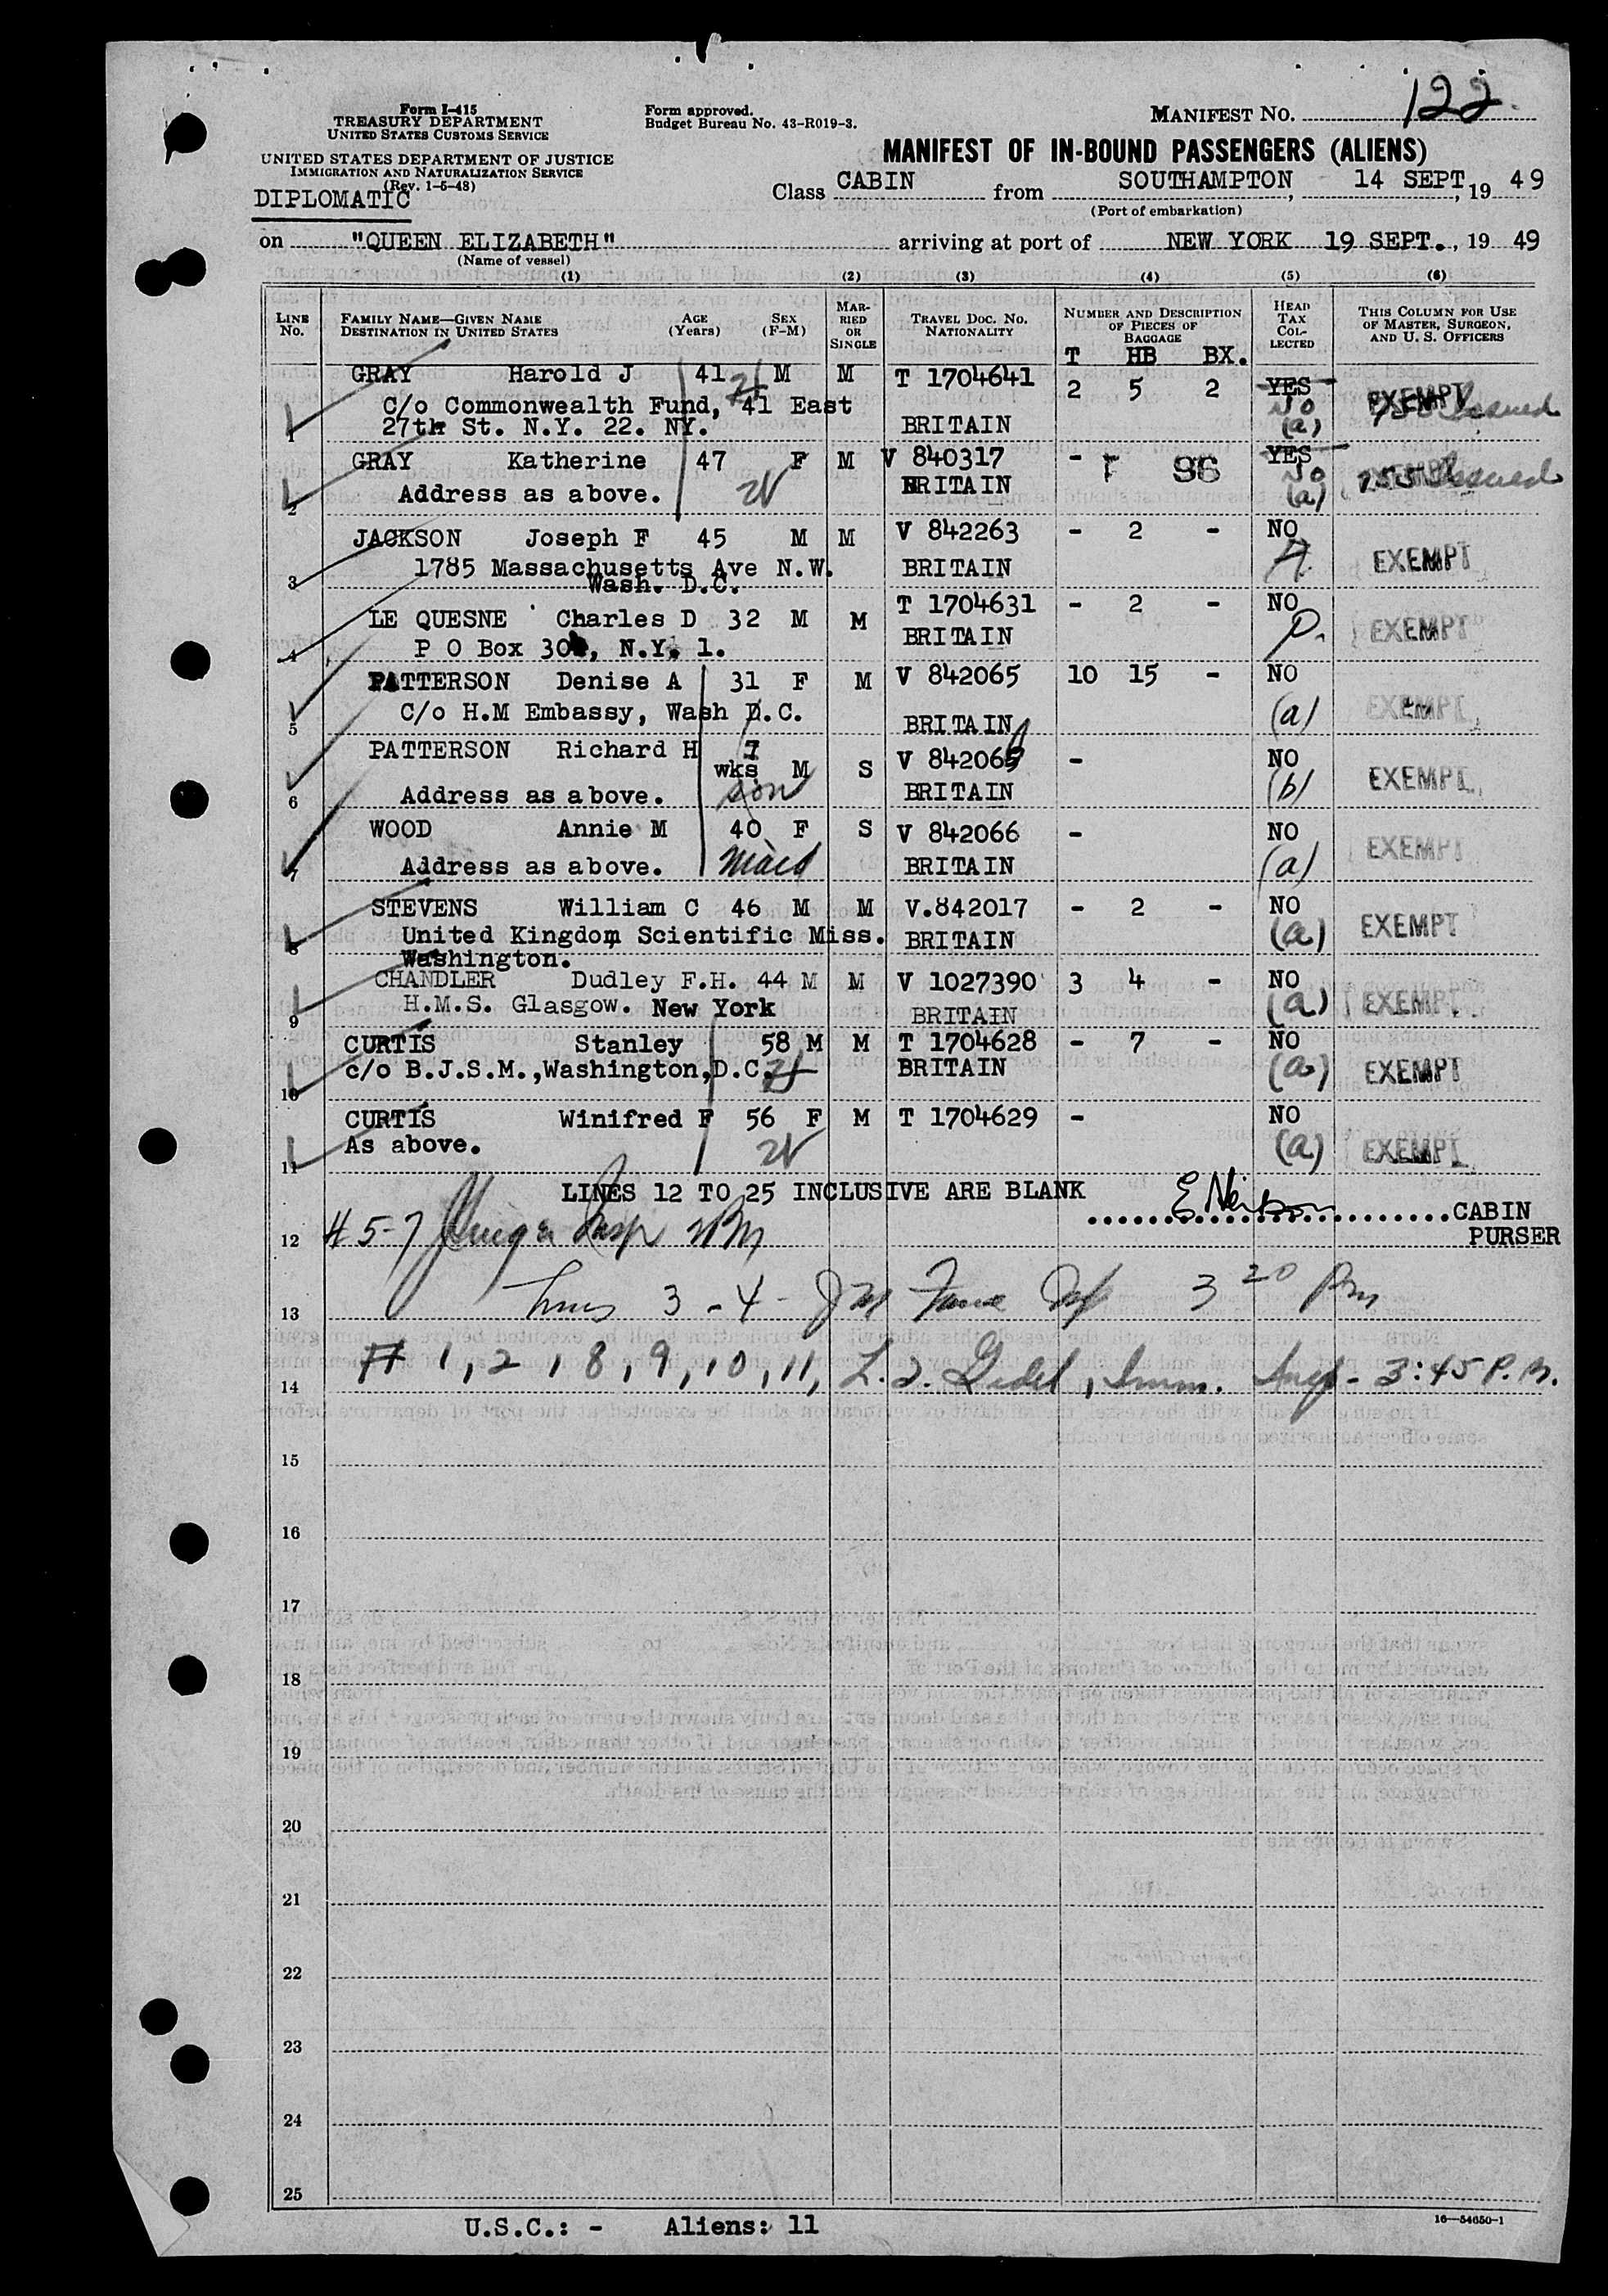 Form I-415
TREASURY DEPARTMENT
UNITED STATES CUSTOMS SERVICE
UNITED STATES DEPARTMENT OF JUSTICE
IMMIGRATION AND NATURALIZATION SERVICE
(Rev. 1-5-48)
DIPLOMATIC
Form approved.
Budget Bureau No. 43-R019-3.
MANIFEST NO. 122
MANIFEST OF IN-BOUND PASSENGERS (ALIENS)
Class CABIN from SOUTHAMPTON, 14 SEPT, 19 49
(Port of embarkation)
on "QUEEN ELIZABETH" arriving at port of NEW YORK 19 SEPT., 19 49
(Name of vessel)
(1) (2) (3) (4) (5) (6)
LINE No. FAMILY NAME—GIVEN NAME DESTINATION IN UNITED STATES AGE (Years) SEX (F-M) MARRIED OR SINGLE TRAVEL DOC. NO. NATIONALITY NUMBER AND DESCRIPTION OF PIECES OF BAGGAGE HEAD TAX COLLECTED THIS COLUMN FOR USE OF MASTER, SURGEON, AND U. S. OFFICERS
T HB BX.
GRAY Harold J 41 M M T 1704641 2 5 2 YES EXEMPT
C/o Commonwealth Fund, 41 East No Issued
1 27th St. N.Y. 22. NY. BRITAIN (a)
GRAY Katherine 47 F M V 840317 - YES
No Issued
2 Address as above. BRITAIN (a)
JACKSON Joseph F 45 M M V 842263 - 2 - NO
3 1785 Massachusetts Ave N.W. BRITAIN EXEMPT
Wash. D.C.
LE QUESNE Charles D 32 M M T 1704631 - 2 - NO
4 P O Box 30, N.Y. 1. BRITAIN EXEMPT
PATTERSON Denise A 31 F M V 842065 10 15 - NO
5 C/o H.M Embassy, Wash D.C. BRITAIN (a) EXEMPT
PATTERSON Richard H 7 wks M S V 84206 - NO
6 Address as above. son BRITAIN (b) EXEMPT
WOOD Annie M 40 F S V 842066 - NO
7 Address as above. Maid BRITAIN (a) EXEMPT
STEVENS William C 46 M M V.842017 - 2 - NO
8 United Kingdom Scientific Miss. BRITAIN (a) EXEMPT
Washington.
CHANDLER Dudley F.H. 44 M M V 1027390 3 4 - NO
9 H.M.S. Glasgow. New York BRITAIN (a) EXEMPT
CURTIS Stanley 58 M M T 1704628 - 7 - NO
10 c/o B.J.S.M.,Washington,D.C. BRITAIN (a) EXEMPT
CURTIS Winifred F 56 F M T 1704629 - NO
11 As above. (a) EXEMPT
LINES 12 TO 25 INCLUSIVE ARE BLANK
CABIN
PURSER
12 # 5-7 Insp
13 Lines 3 - 4 - 3 20 Pm
14 # 1, 2, 8, 9, 10, 11, Imm. Insp. 3:45 P.M.
15
16
17
18
19
20
21
22
23
24
25
U.S.C.: - Aliens: 11
16—54650-1